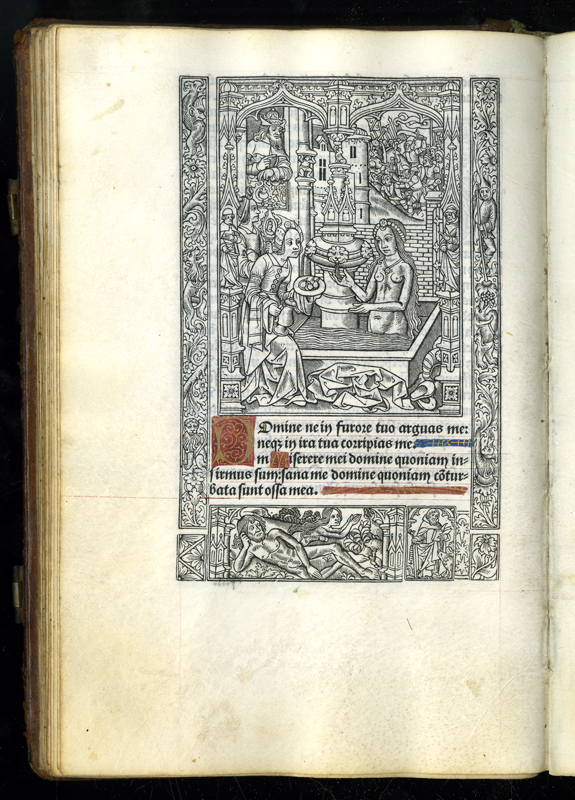 Domine ne in furore tuo arguas me:
neqз in ira tua corripias me.
m Miserere mei domine quoniam in-
firmus sum: sana me domine quoniam cõtur-
bata sunt ossa mea.